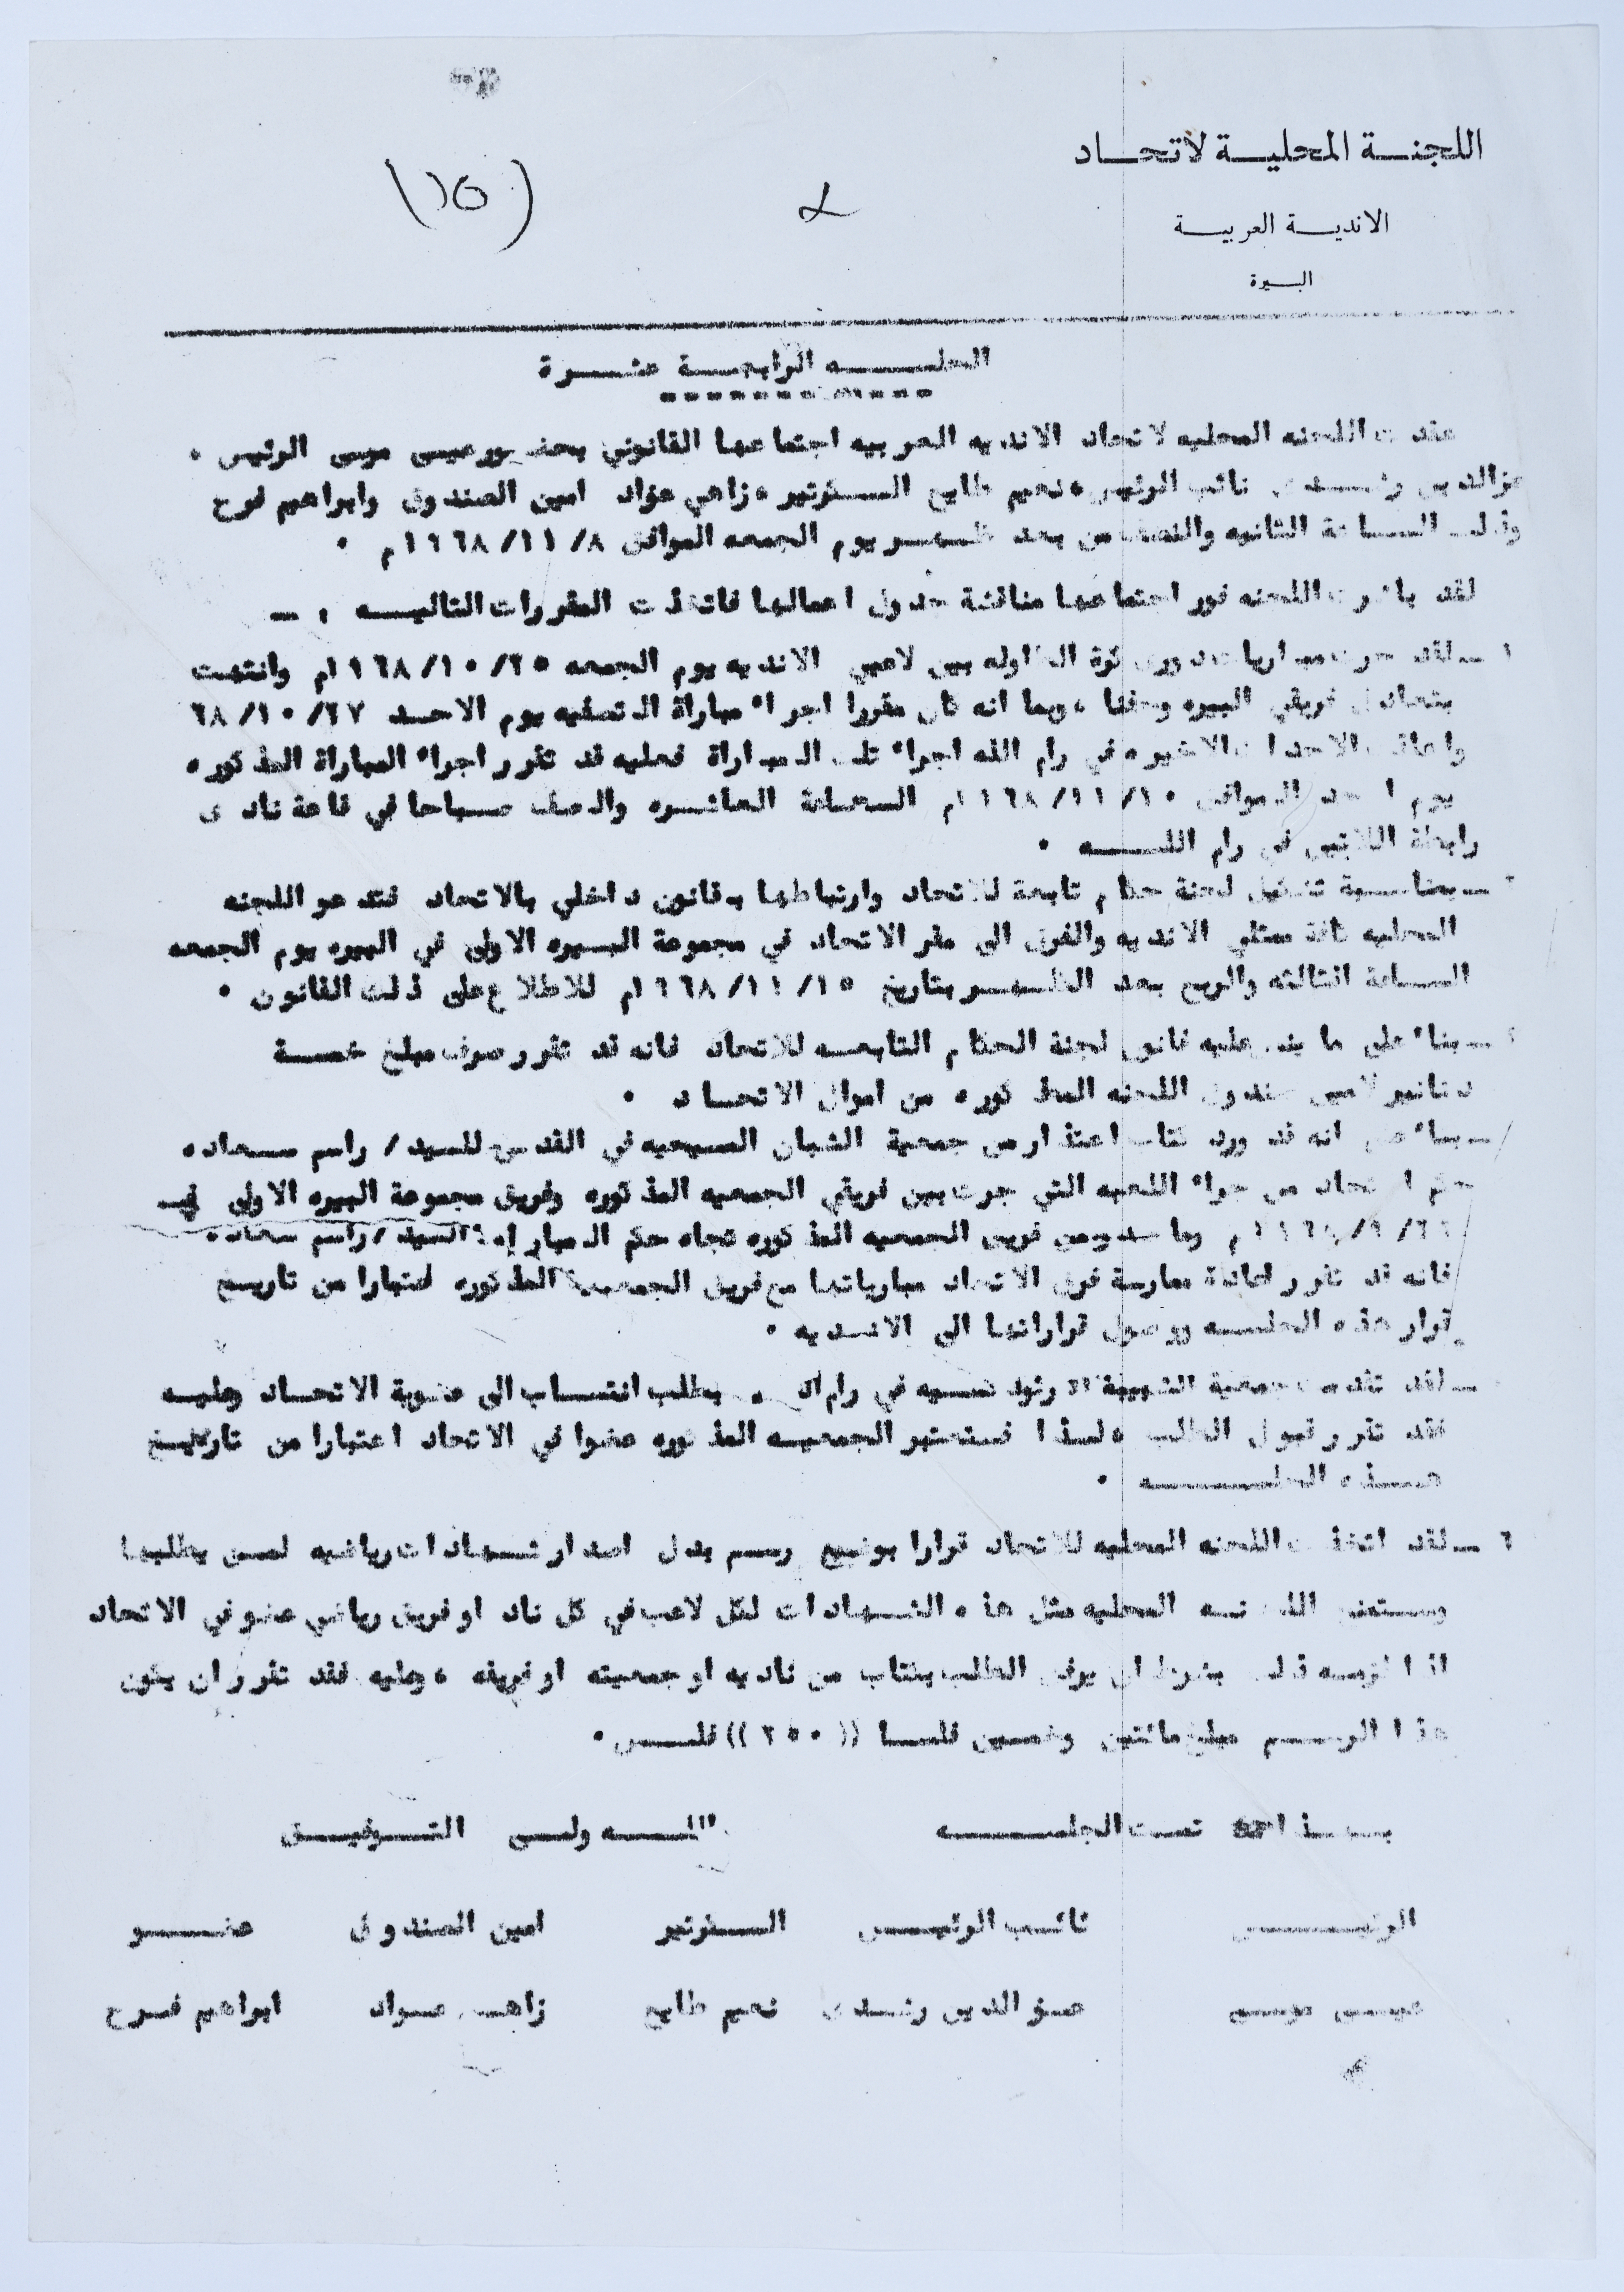 اللجنة المحلية لاتحاد
الاندية العربية
البيرة
(١٥)
الجلسه الرابعة عشرة
عقدت اللجنه المحليه لاتحاد الانديه العربيه اجتماعها القانوني بحضور عيسى موسى الرئيس .
عزالدين رشدى نائب الرئيس ، نعيم طايع السكرتير ، زاهي عواد امين الصندوق وابراهيم فرح
وذلك الساعة الثانيه والنصف من بعد ظهر يوم الجمعه الموافق ٨/ ١١/ ١٩٦٨م .
لقد باشرت اللجنه فور اجتماعها مناقشة جدول اعمالها فاتخذت المقررات التاليه : ـ
١ ـ لقد جرت مباريات دورى كرة الطاوله بين لاعبي الانديه يوم الجمعه ٢٥/ ١٠/ ١٩٦٨م وانتهت
بتعادل فريقي البيره ، وبما انه كان مقررا اجراء مباراة التصفيه يوم الاحد ٢٧/ ١٠/ ٦٨
الاحداث الاخيره في رام الله اجراء تلك المباراة فعليه قد تقرر اجراء المباراة المذكوره
يوم الاحد الموافق ١٠/ ١١/ ١٩٦٨م الساعة العاشره والنصف صباحا في قاعة نادى
رابطة اللاجئين في رام الله .
٢ ـ بمناسبة تشكيل لجنة حكام تابعة للاتحاد وارتباطها بقانون داخلي بالاتحاد فتدعو اللجنه
المحليه كافة ممثلي الانديه والفرق الى مقر الاتحاد في مجموعة البيره الاولى في البيره يوم الجمعه
الساعة الثالثه والربع بعد الظهر بتاريخ ١٥/ ١١/ ١٩٦٨م للاطلاع على ذلك القانون .
ـ بناء على ما ينص عليه قانون لجنة الحكام التابعه للاتحاد فانه قد تقرر صرف مبلغ خمسة
دنانير لامين صندوق اللجنه المذكوره من اموال الاتحاد .
ـ بناء على انه قد ورد كتاب اعتذار من جمعية الشبان المسيحيه في القدس للسيد / راسم سعاده
حكم الاتحاد من جراء اللعبه التي جرت بين فريقي الجمعيه المذكوره وفريق مجموعة البيره الاولى في
وما من فريق الجمعيه المذكوره تجاه حكم المباراه السيد / راسم سعاده
فانه قد تقرر اعادة ممارسة فرق الاتحاد مبارياتها مع فريق الجمعية المذكوره اعتبارا من تاريخ
قرار هذه الجلسه ووصول قراراتها الى الانديه .
ـ لقد تقدمت جمعية الشبيبة الارثوذكسيه في رام الله بطلب انتساب الى عضوية الاتحاد وعليه
فقد تقرر قبول الطلب ، لذا فستعتبر الجمعيه المذكوره عضوا في الاتحاد اعتبارا من تاريخ
هذه الجلسه .
٦ ـ لقد اتخذت اللجنه المحليه للاتحاد قرارا بوضع رسم بدل اصدار شهادات رياضيه لمن يطلبها
وستمنح اللجنه المحليه مثل هذه الشهادات لكل لاعب في كل ناد او فريق رياضي عضو في الاتحاد
اذا لزمه ذلك بشرط ان يرفق الطلب بكتاب من ناديه او جمعيته او فريقه ، وعليه فقد تقرر ان يكون
هذا الرسم مبلغ مائتين وخمسين فلسا ((٢٥٠)) فلس .
بهذا تمت الجلسه والله ولي التوفيق
الرئيس نائب الرئيس السكرتير امين الصندوق عضو
عيسى موسى عز الدين رشدى نعيم طايع زاهي عواد ابراهيم فرح